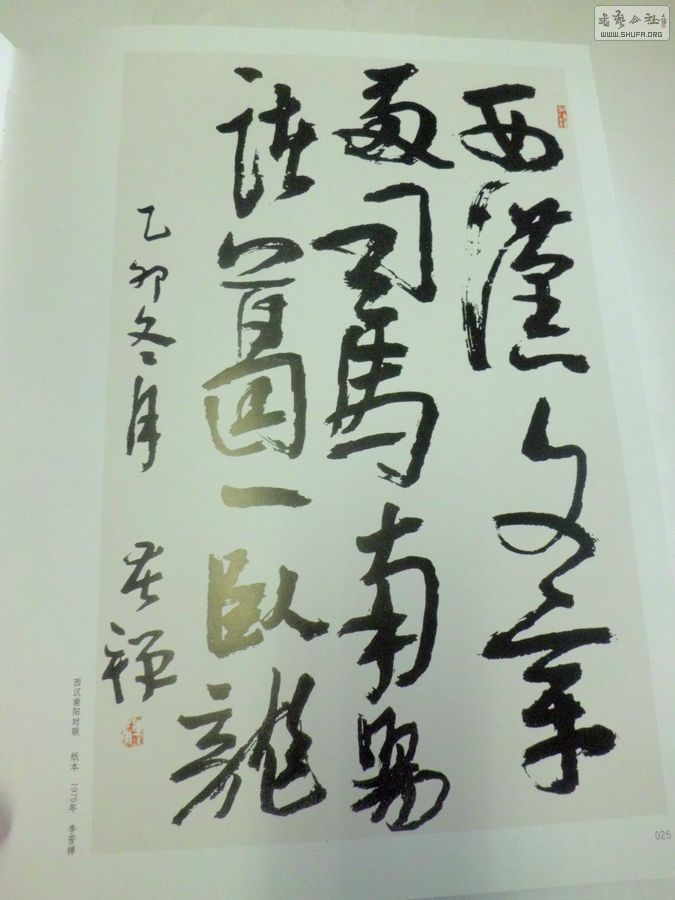 書藝公社
WWW.SHUFA.ORG
西漢文章
兩司馬南陽
諸葛一臥龍
乙卯冬月 苦禅
西汉南阳对联 纸本 1975年 李苦禅
025